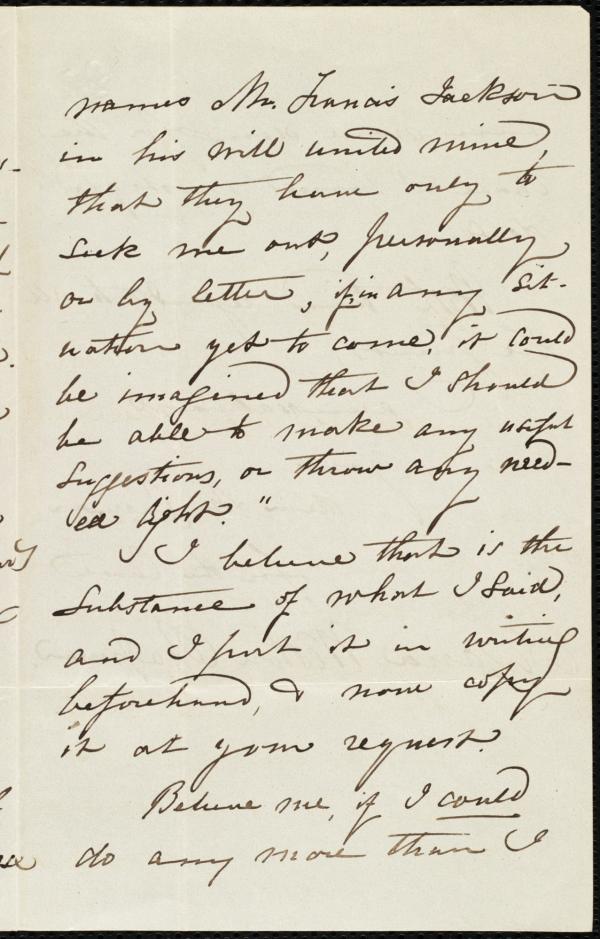 names Mr. Francis Jackson
in his will united mine,
that they have only to
seek me out, personally
or by letter, if, in any sit-
uation yet to come, it could
be imagined that I should
be able to make any useful
suggestions, or throw any need-
ed light."
I believe that is the
substance of what I said,
and I put it in writing
beforehand, & now copy
it at your request.
Believe me, if I could
do any more than I